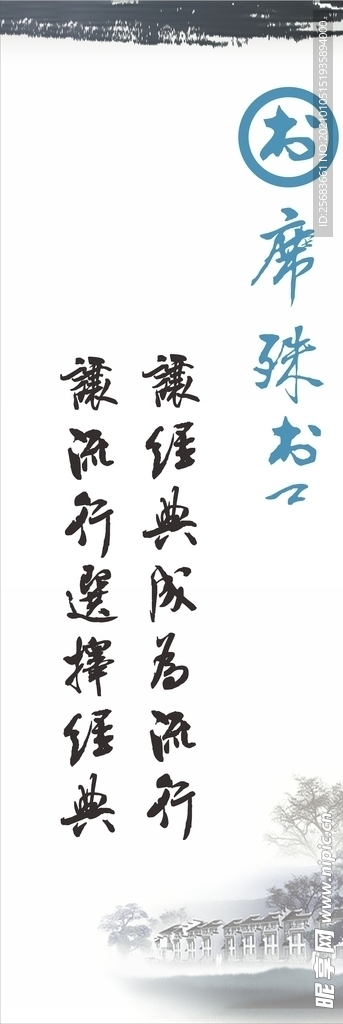 书
席殊书
讓經典成為流行
讓流行選擇經典
ID:25683661 NO:20210105151935894000
昵享网 www.nipic.cn